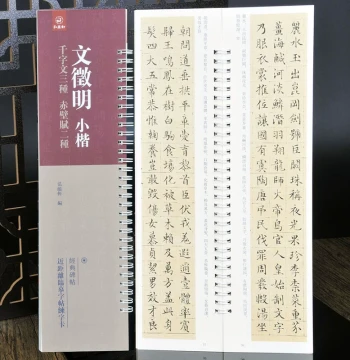 文徵明 小楷
千字文三種 赤壁賦二種
經典碑帖
近距離臨摹字帖練字卡
麗水玉出崑岡劍號巨闕珠稱夜光果珍李柰菜重芥
薑海鹹河淡鱗潛羽翔龍師火帝鳥官人皇始制文字
乃服衣裳推位讓國有虞陶唐弔民伐罪周發殷湯坐
朝問道垂拱平章愛育黎首臣伏戎羌遐邇壹體率賓
歸王鳴鳳在樹白駒食場化被草木賴及萬方蓋此身
髮四大五常恭惟鞠養豈敢毀傷女慕貞絜男效才良